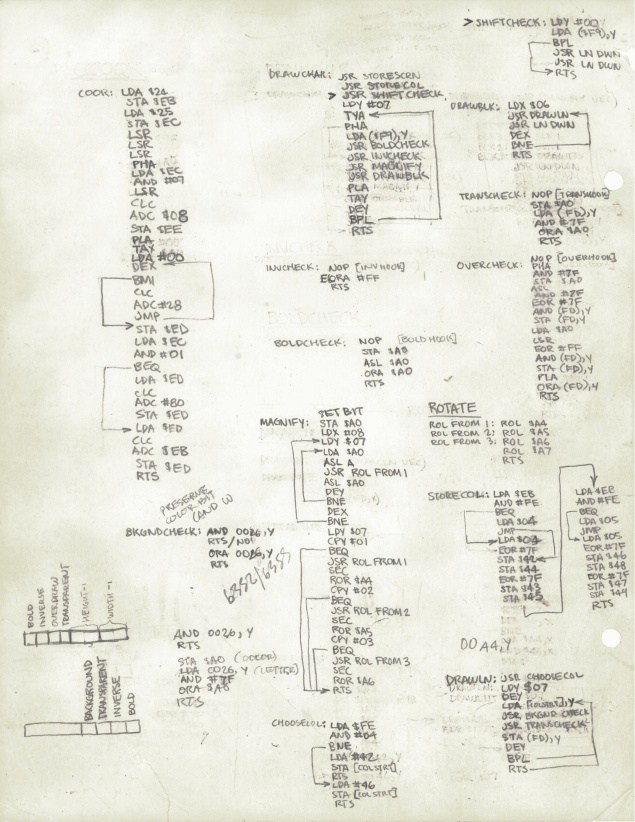 > SHIFTCHECK: LDY #00
LDA ($F9),Y
BPL
JSR LN DWN
JSR LN DWN
RTS
COOR: LDA $24
STA $EB
LDA $25
STA $EC
LSR
LSR
LSR
PHA
LDA $EC
AND #07
LSR
CLC
ADC $08
STA $EE
PLA
TAX
LDA #00
DEX
BMI
CLC
ADC #28
JMP
STA $ED
LDA $EC
AND #01
BEQ
LDA $ED
CLC
ADC #80
STA $ED
LDA $ED
CLC
ADC $EB
STA $ED
RTS
DRAWCHAR: JSR STORESCRN
JSR STORECOL
> JSR SHIFTCHECK
LDY #07
TYA
PHA
LDA ($F9),Y
JSR BOLDCHECK
JSR INVCHECK
JSR MAGNIFY
JSR DRAWBLK
PLA
TAY
DEY
BPL
RTS
DRAWBLK: LDX $06
JSR DRAWLN
JSR LN DWN
DEX
BNE
RTS
TRANSCHECK: NOP [TRANSHOOK]
STA $A0
LDA (FD),Y
AND #7F
ORA $A0
RTS
INVCHECK: NOP [INVHOOK]
EORA #FF
RTS
OVERCHECK: NOP [OVERHOOK]
PHA
AND #7F
STA $A0
ASL
AND #7F
EOR #7F
AND (FD),Y
STA (FD),Y
LDA $A0
LSR
EOR #FF
AND (FD),Y
STA (FD),Y
PLA
ORA (FD),Y
RTS
BOLDCHECK: NOP [BOLD HOOK]
STA $A0
ASL $A0
ORA $A0
RTS
MAGNIFY: SET BYT
STA $A0
LDX #08
LDY $07
LDA $A0
ASL A
JSR ROL FROM 1
ASL $A0
DEY
BNE
DEX
BNE
LDY $07
CPY #01
BEQ
JSR ROL FROM 1
SEC
ROR $A4
CPY #02
BEQ
JSR ROL FROM 2
SEC
ROR $A5
CPY #03
BEQ
JSR ROL FROM 3
SEC
ROR $A6
RTS
ROTATE
ROL FROM 1: ROL $A4
ROL FROM 2: ROL $A5
ROL FROM 3: ROL $A6
ROL $A7
RTS
STORECOL: LDA $EB
AND #FE
BEQ
LDA $04
JMP
LDA $04
EOR #7F
STA $42
STA $44
EOR #7F
STA $43
STA $45
LDA $EB
AND #FE
BEQ
LDA $05
JMP
LDA $05
EOR #7F
STA $46
STA $48
EOR #7F
STA $47
STA $49
RTS
PRESERVE
COLOR BIT
(AND W
BKGNDCHECK: AND 0026,Y
RTS/NOP
ORA 0026,Y
RTS
BOLD
INVERSE
OVERDRAW
TRANSPARENT
HEIGHT-1
WIDTH-1
AND 0026,Y
RTS
STA $A0 (COLOR)
LDA 0026,Y (LETTER)
AND #7F
ORA $A0
RTS
BACKGROUND
TRANSPARENT
INVERSE
BOLD
00A4,Y
DRAWLN: JSR CHOOSECOL
LDY $07
DEY
LDA [COLSTRT],Y
JSR BKGND CHECK
JSR TRANSCHECK
STA (FD),Y
DEY
BPL
RTS
CHOOSECOL: LDA $FE
AND #04
BNE
LDA #42
STA [COLSTRT]
RTS
LDA #46
STA [COLSTRT]
RTS